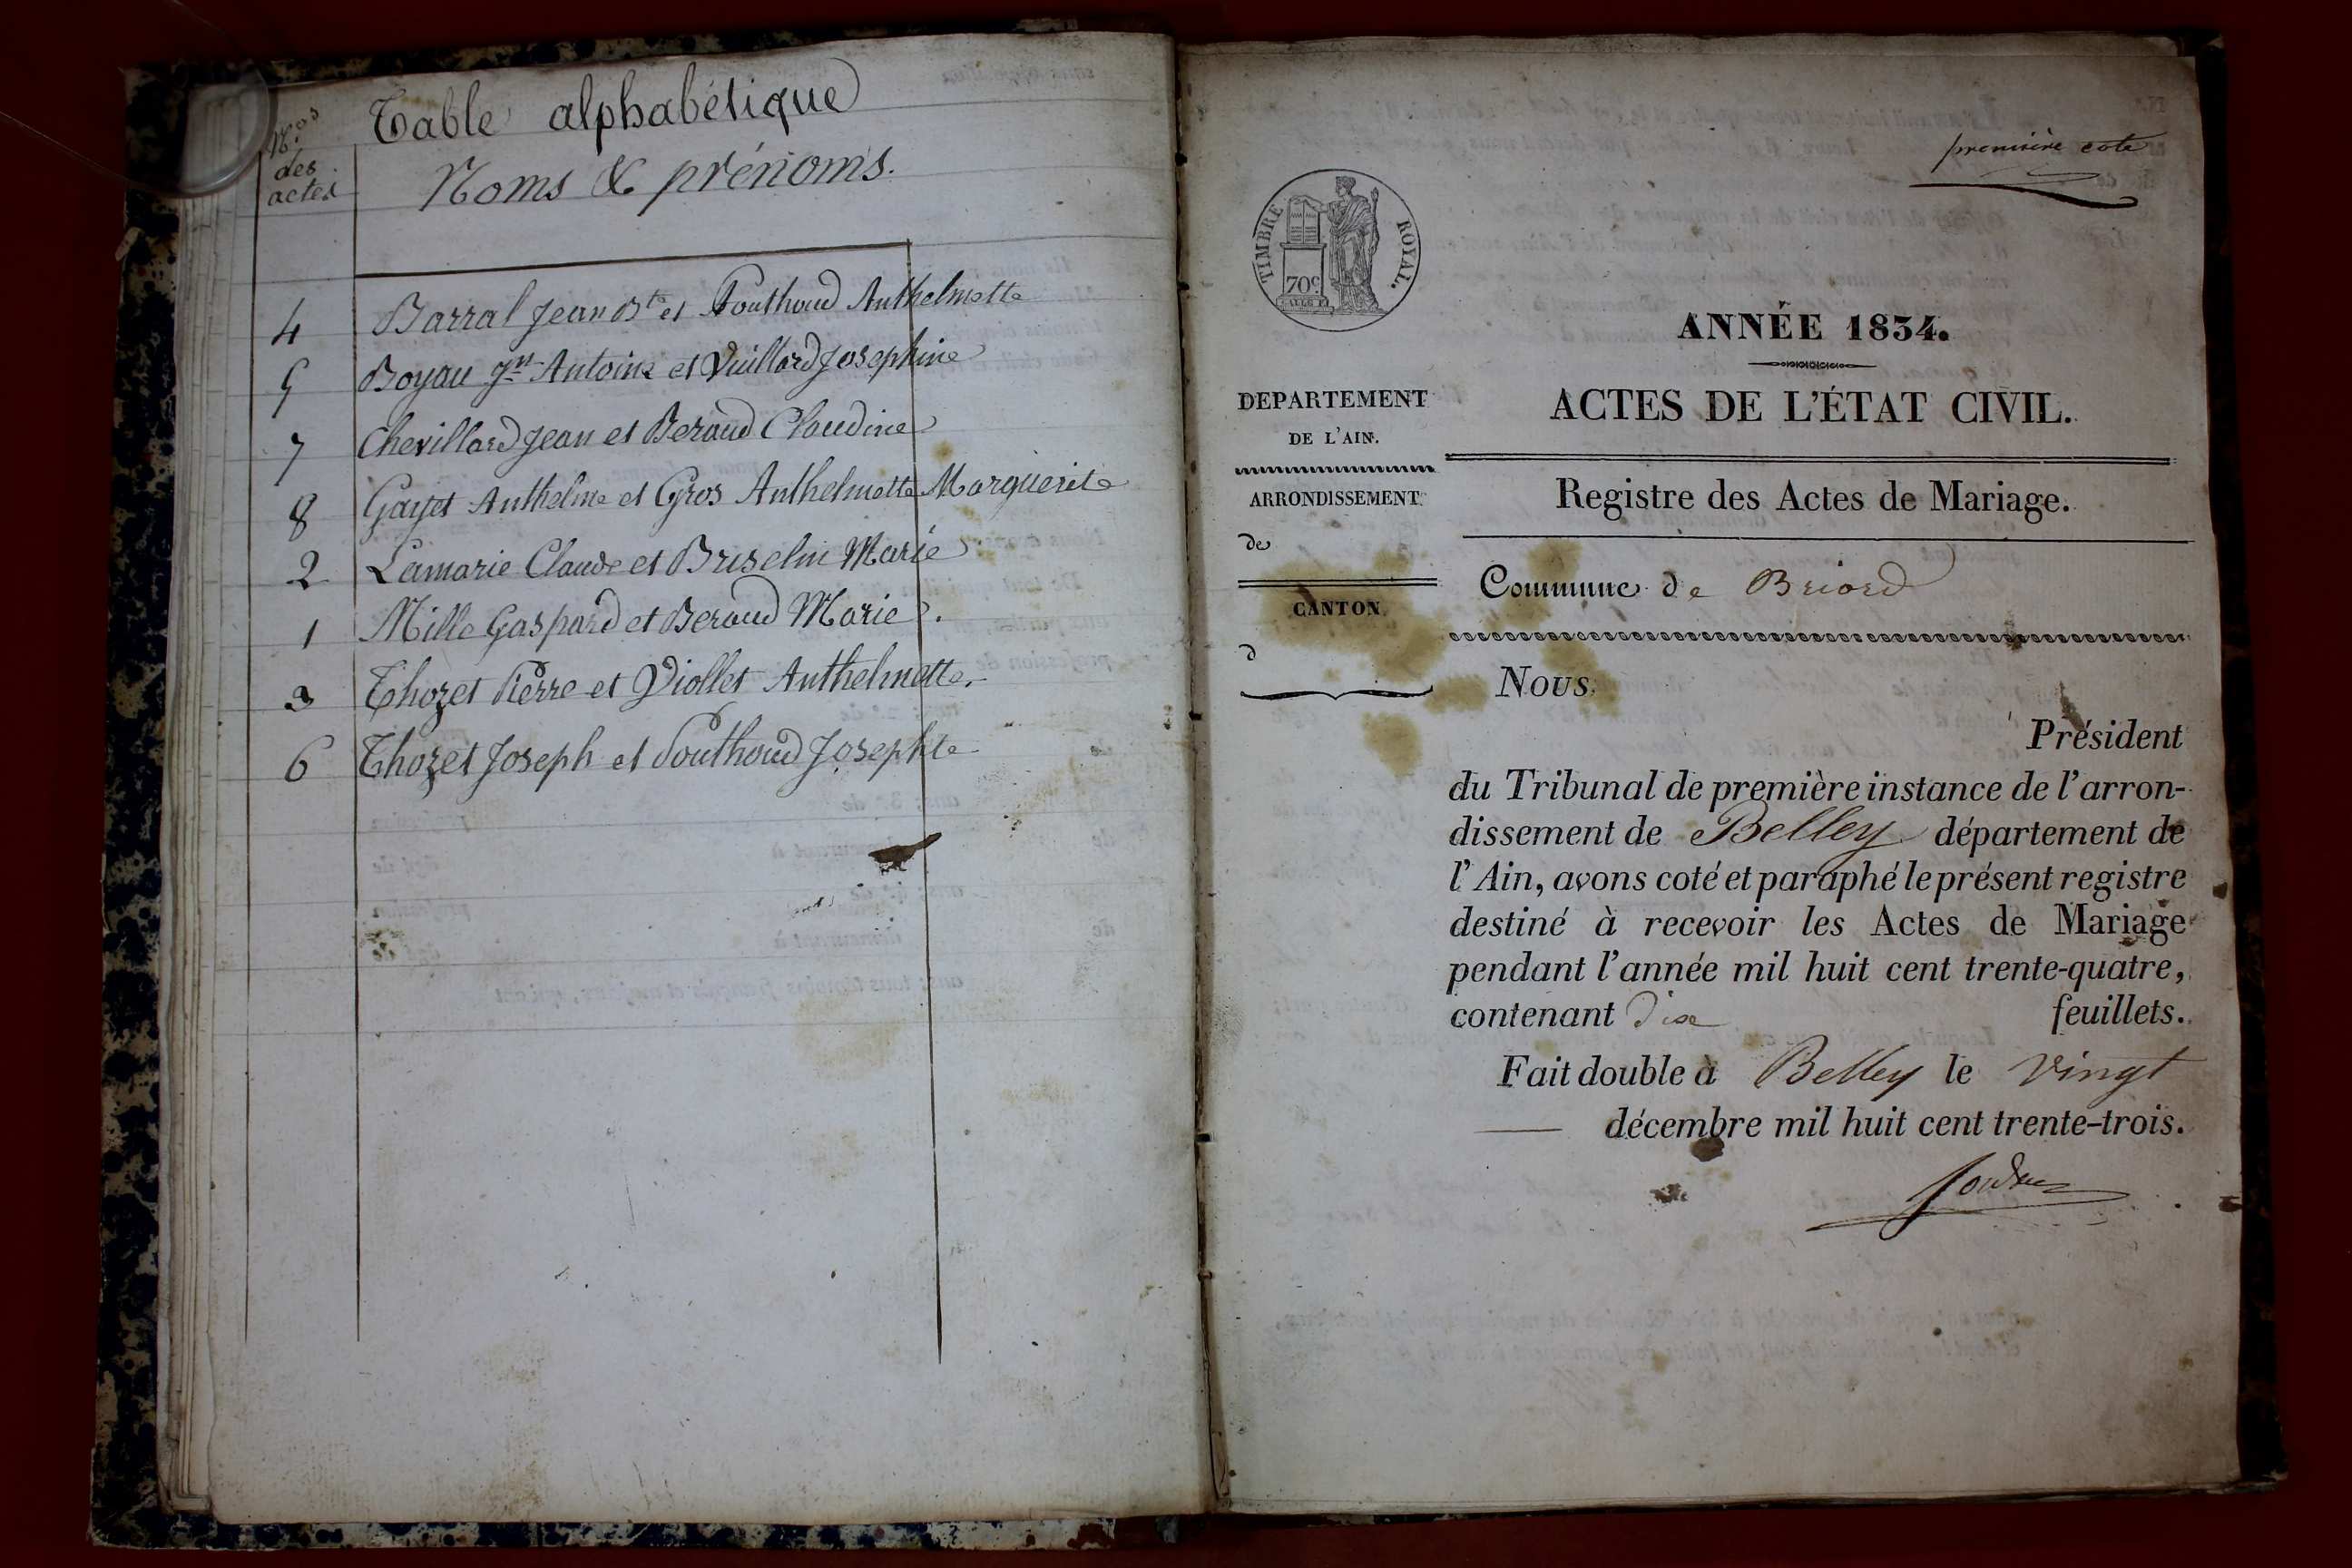 Table alphabétique
Nos
des
actes
Noms & prénoms.
4 Barral Jean Bte et Pouthoud Anthelmette
5 Boyau Antoine et Vuillard Josephine
7 Chevillard Jean et Beraud Claudine
8 Gayet Anthelme et Gros Anthelmette Marguerite
2 Lamarie Claude et Briselin Marie
1 Mille Gaspard et Beraud Marie.
3 Thozet Pierre et Viollet Anthelmette.
6 Thozet Joseph et Pouthoud Josephte
première cote
TIMBRE ROYAL.
70c
ANNÉE 1834.
ACTES DE L'ÉTAT CIVIL.
Registre des Actes de Mariage.
DEPARTEMENT
DE L'AIN.
ARRONDISSEMENT
de
CANTON
d
Commune de Briord
Nous
Président
du Tribunal de première instance de l'arron-
dissement de Belley département de
l'Ain, avons coté et paraphé le présent registre
destiné à recevoir les Actes de Mariage
pendant l'année mil huit cent trente-quatre,
contenant dix feuillets.
Fait double à Belley le vingt
décembre mil huit cent trente-trois.